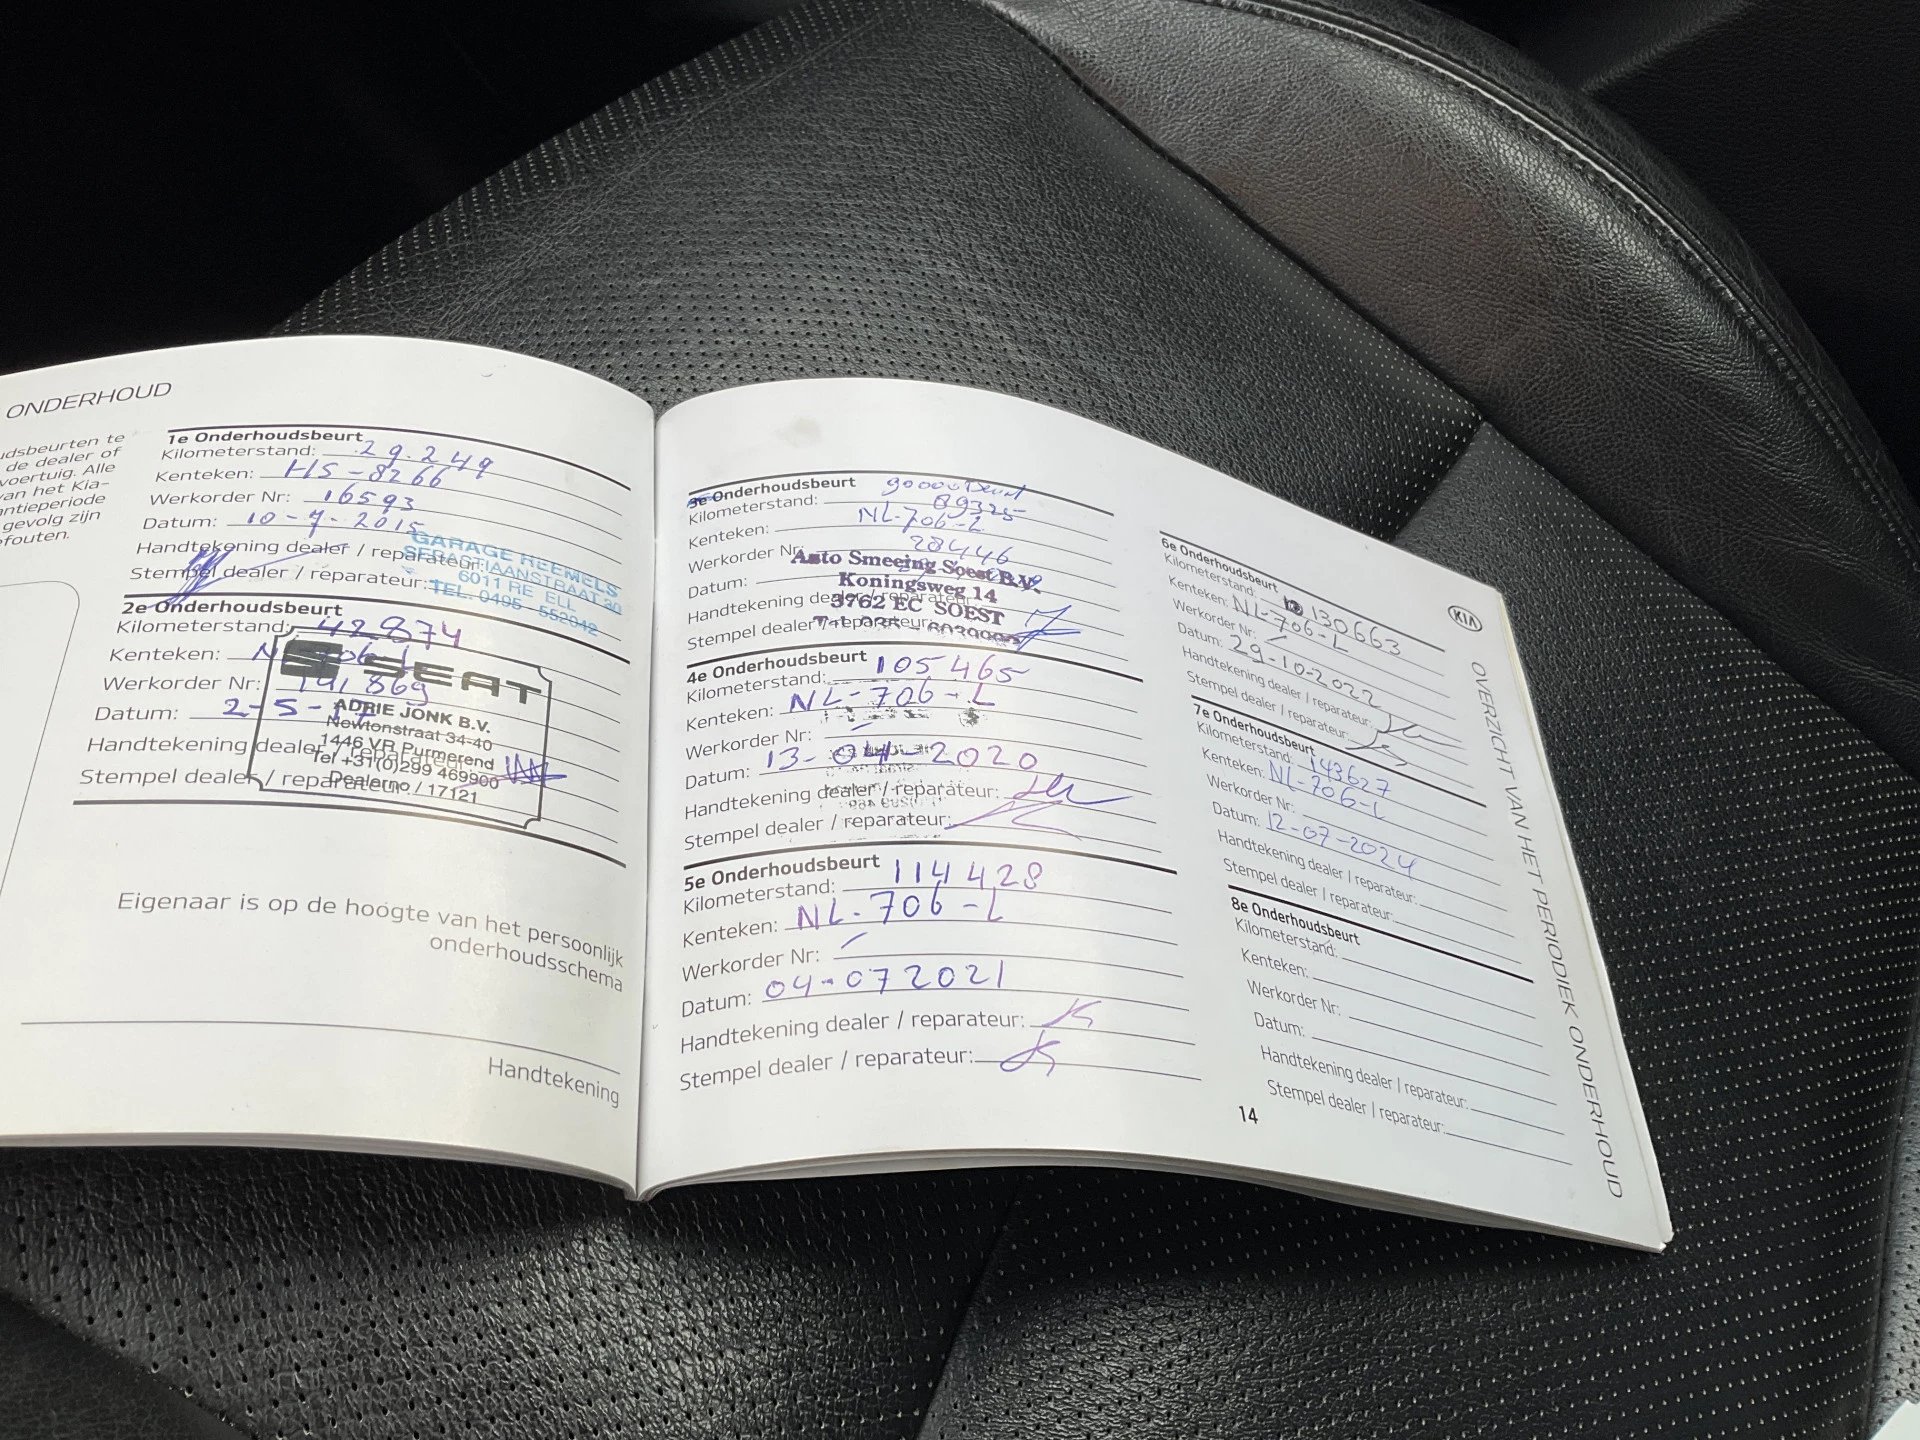 ONDERHOUD
udsbeurten te
de dealer of
voertuig. Alle
van het Kia-
antieperiode
gevolg zijn
efouten.
1e Onderhoudsbeurt
Kilometerstand: 29.249
Kenteken: HS-8266
Werkorder Nr: 16593
Datum: 10-7-2015
Handtekening dealer / reparateur:
Stempel dealer / reparateur:
GARAGE HEEMELS
SEBASTIAANSTRAAT 30
6011 RE ELL
TEL. 0495 552042
2e Onderhoudsbeurt
Kilometerstand: 42874
Kenteken:
Werkorder Nr: 141869
Datum: 2-5-17
Handtekening dealer / reparateur:
Stempel dealer / reparateur:
SEAT
ADRIE JONK B.V.
Newtonstraat 34-40
1446 VR Purmerend
Tel +31(0)299 469900
Dealerno / 17121
Eigenaar is op de hoogte van het persoonlijk
onderhoudsschema
Handtekening
3e Onderhoudsbeurt 90000 Beurt
Kilometerstand: 89325
Kenteken: NL-706-L
Werkorder Nr: 28446
Datum:
Handtekening dealer / reparateur:
Stempel dealer / reparateur:
Auto Smeeing Soest B.V.
Koningsweg 14
3762 EC SOEST
4e Onderhoudsbeurt
Kilometerstand: 105465
Kenteken: NL-706-L
Werkorder Nr: –
Datum: 13-04-2020
Handtekening dealer / reparateur:
Stempel dealer / reparateur:
5e Onderhoudsbeurt
Kilometerstand: 114428
Kenteken: NL-706-L
Werkorder Nr: –
Datum: 04-07 2021
Handtekening dealer / reparateur:
Stempel dealer / reparateur:
6e Onderhoudsbeurt
Kilometerstand: 130663
Kenteken: NL-706-L
Werkorder Nr: –
Datum: 29-10-2022
Handtekening dealer / reparateur:
Stempel dealer / reparateur:
7e Onderhoudsbeurt
Kilometerstand: 143627
Kenteken: NL-706-L
Werkorder Nr:
Datum: 12-07-2024
Handtekening dealer / reparateur:
Stempel dealer / reparateur:
8e Onderhoudsbeurt
Kilometerstand:
Kenteken:
Werkorder Nr:
Datum:
Handtekening dealer / reparateur:
Stempel dealer / reparateur:
14
KIA
OVERZICHT VAN HET PERIODIEK ONDERHOUD